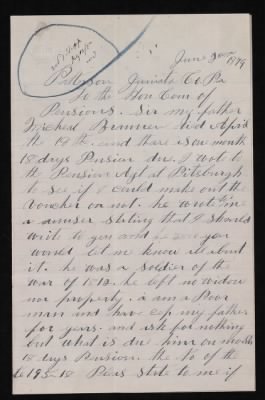 June 3rd 1879
Patterson Juniata Co Pa
To the Hon Com of
Pensions. Sir my father
Micheal Brunner died April
the 18th. and there is on month
18 days Pension due. I wrot to
the Pension Agt at Pittsburgh
to see if I could make out the
voucher or not. he wrot me
a answer stating that I should
write to you and you
would let me know all about
it. he was a soldier of the
war of 1812. he left no widow
nor property. I am a Poor
man and have cep my father
for years. and ask for nothing
but what is due him on month
18 days Pension. the No of the
195-18 Pleas state to me if